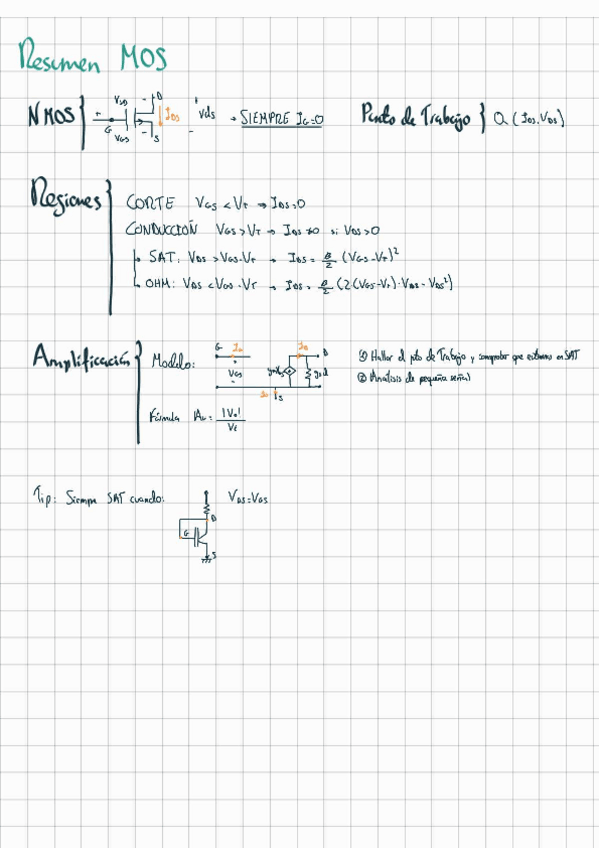 Resumen MOS
NMOS
+ VGD - D
G
+ VGS - S
IDS
+ Vds -
→ SIEMPRE IG=0
Punto de Trabajo } Q (IDS, VDS)
Regiones
CORTE VGS < VT → IDS=0
CONDUCCIÓN VGS > VT → IDS ≠0 si VDS>0
↳ SAT: VDS > VGS-VT → IDS = β/2 (VGS-VT)²
↳ OHM: VDS < VGS-VT → IDS = β/2 (2(VGS-VT)·VDS - VDS²)
Amplificación
Modelo:
G
VGS
D
S
① Hallar el pto de Trabajo y comprobar que estamos en SAT
② Análisis de pequeña señal
Fórmula |Av| = |Vo|/Vi
Tip: Siempre SAT cuando:
D
G
S
VDS=VGS